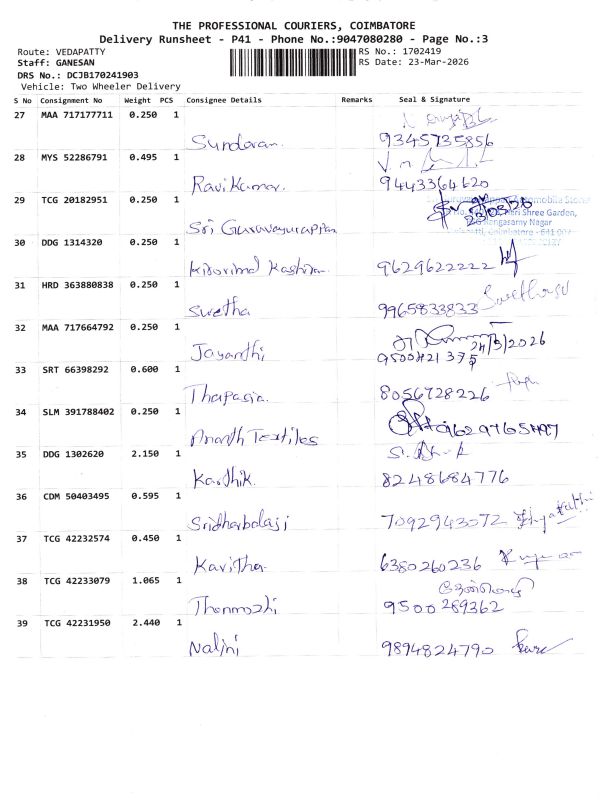 THE PROFESSIONAL COURIERS, COIMBATORE
Delivery Runsheet - P41 - Phone No.:9047080280 - Page No.:3
Route: VEDAPATTY
RS No.: 1702419
Staff: GANESAN
RS Date: 23-Mar-2026
DRS No.: DCJB170241903
Vehicle: Two Wheeler Delivery
S No Consignment No Weight PCS Consignee Details Remarks Seal & Signature
27 MAA 717177711 0.250 1
Sundaran. 9345735856
28 MYS 52286791 0.495 1
Ravikumar. 9443364620
29 TCG 20182951 0.250 1
Sri Guruvayurappan
Shree Garden,
Rangasamy Nagar
Coimbatore - 641 007
30 DDG 1314320 0.250 1
9629622222
31 HRD 363880838 0.250 1
Swetha 9965833833
32 MAA 717664792 0.250 1
24/3/2026
Jayanthi 9500421375
33 SRT 66398292 0.600 1
Thapasia. 8056728226
34 SLM 391788402 0.250 1
Ananth Textiles
35 DDG 1302620 2.150 1
Karthik. 8248684776
36 CDM 50403495 0.595 1
Sridharbalaji 7092943072
37 TCG 42232574 0.450 1
Kavitha 6380260236
38 TCG 42233079 1.065 1
தேன்மொழி
Thenmozhi 9500289362
39 TCG 42231950 2.440 1
Nalini 9894824790